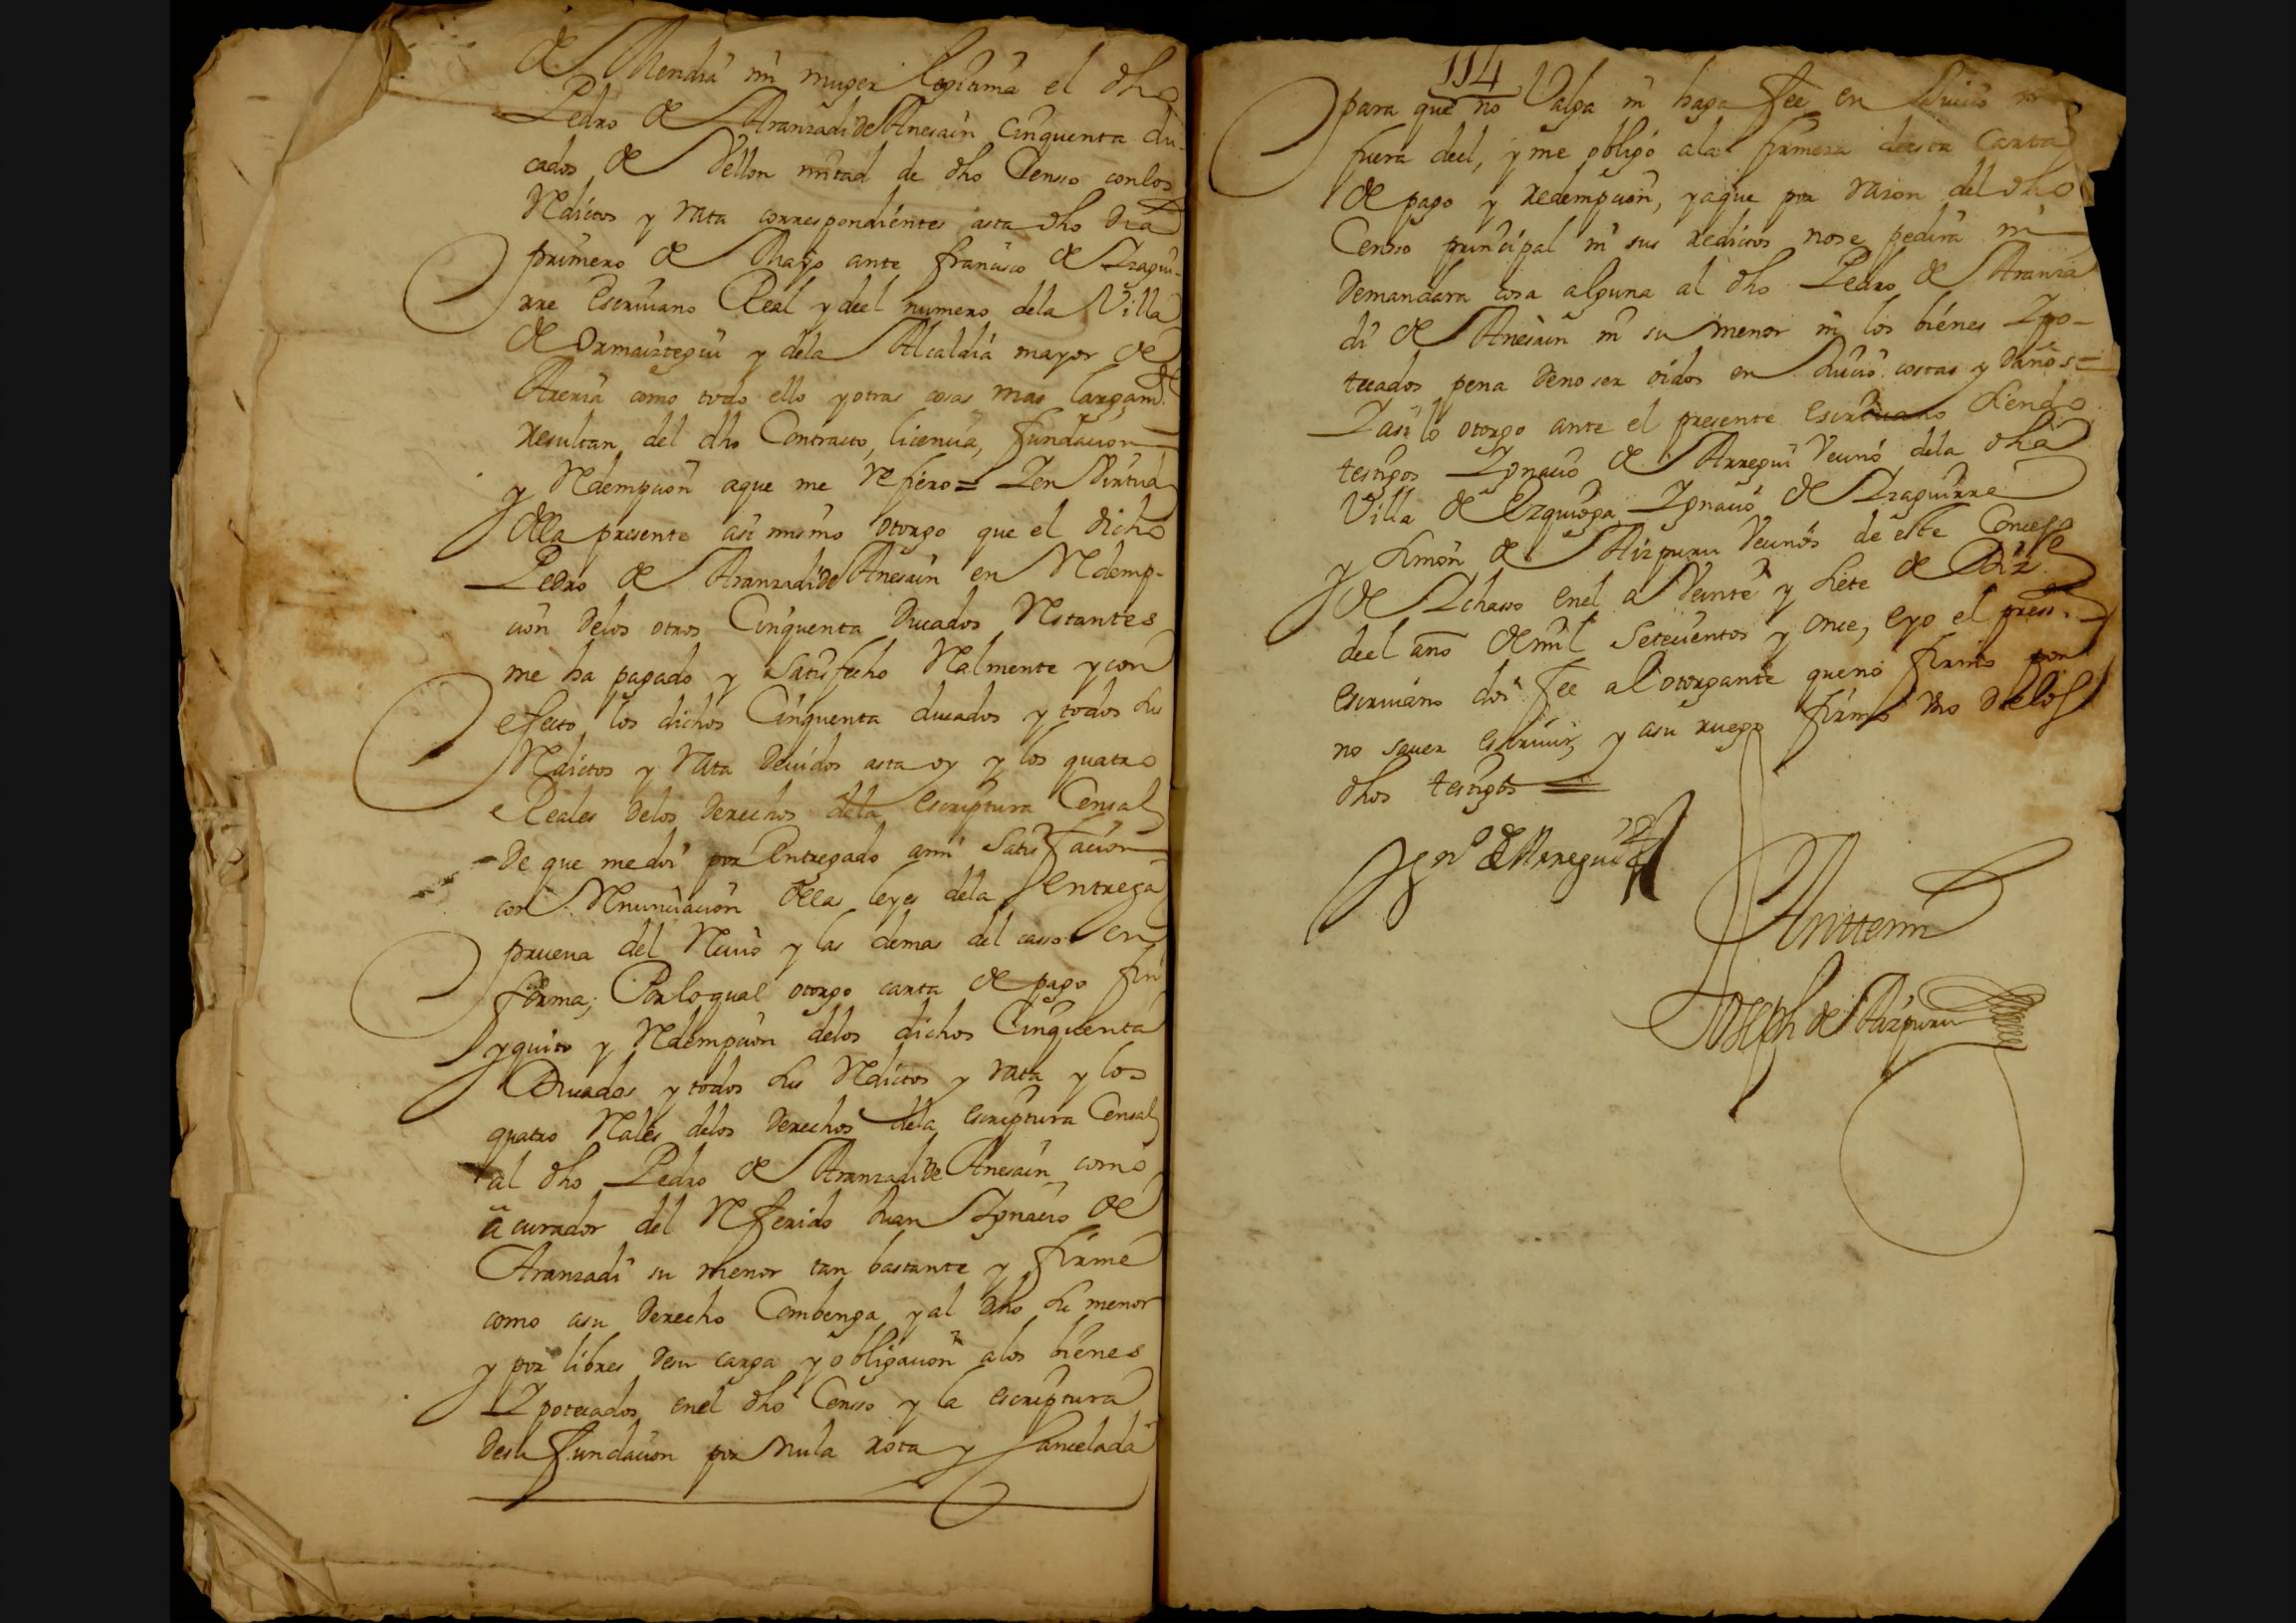 de Mendia mi muger lexitima el dho
Pedro de Aranzadi de Anesain cinquenta du-
cados de Vellon mitad de dho Censso con los
Reditos y rata correspondientes asta dho dia
primero de Mayo ante francisco de Yragui-
rre escriuano Real y deel numero dela Villa
de Ormaiztegui y dela Alcaldia mayor de
Areria como todo ello y otras cosas mas largamte
resultan del dho Contracto, licencia, fundacion
y Redempcion aque me refiero = Y en Virtud
della presente asi mismo otorgo que el dicho
Pedro de Aranzadi de Anesain en Redemp-
cion delos otros Cinquenta Ducados Restantes
me ha pagado y satisfecho Realmente y con
efecto los dichos Cinquenta ducados y todos sus
Reditos y Rata deuidos asta oy y los quatro
Reales delos derechos dela escriptura Censal
de que me doi por entregado a mi satisfacion
con Renunciacion de las leyes dela entrega
prueua del Reciuo y las demas del casso en
forma; Por lo qual otorgo carta de pago fin
y quito y Redempcion delos dichos Cinquenta
Ducados y todos sus Reditos y rata y los
quatro Reales delos derechos dela escriptura Censal
al dho Pedro de Aranzadi de Anesain como
a curador del Referido Juan Ygnacio de
Aranzadi su menor tan bastante y firme
como asu derecho Combenga y al dho su menor
y por libres desu carga y obligacion a los bienes
Ypotecados enel dho Censso y la escriptura
desu fundacion por nula rota y Cancelada
114
para que no Valga ni haga fee en Juicio ni
fuera deel, y me obligo ala firmeza desta Carta
de pago y redempcion, y aque por razon del dho
Censso principal ni sus reditos no se pedira ni
demandara cosa alguna al dho Pedro de Aranza
di de Anesain ni su menor ni los bienes Ypo-
tecados pena de no ser oidos en Juicio costas y daños =
Y asi lo otorgo ante el presente escriuano siendo
testigos Ygnacio de Arregui Vecino dela dha
Villa de Ezquioga Ygnacio de Yraguirre
y Simon de Aizpuru Vecinos de este Concejo
de Ychasso enel a Veinte y siete de Dize
deel año de mil setecientos y once, e yo el press.
escriuano doi fee al otorgante que no firmo por
no sauer escriuir, y asu ruego firmo vno delos
dhos testigos =
Ygnº de Arregui
Antte mi
Joseph de Aizpuru